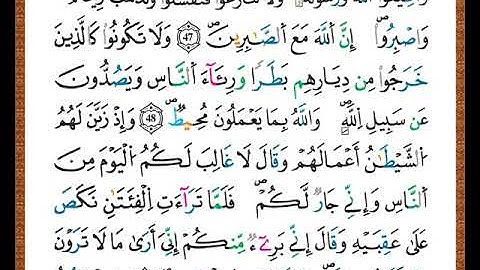 وَأَطِيعُوا۟ اُ۬للَّهَ وَرَسُولَهُۥ وَلَا تَنَٰزَعُوا۟ فَتَفْشَلُوا۟ وَتَذْهَبَ
وَاصْبِرُوٓا۟ۖ إِنَّ اَ۬للَّهَ مَعَ اَ۬لصَّٰبِرِينَۖ 47 وَلَا تَكُونُوا۟ كَالَّذِينَ
خَرَجُوا۟ مِن دِيَٰرِهِم بَطَراٗ وَرِئَآءَ اَ۬لنَّاسِ وَيَصُدُّونَ
عَن سَبِيلِ اِ۬للَّهِۖ وَاللَّهُ بِمَا يَعْمَلُونَ مُحِيطٞۖ 48 وَإِذْ زَيَّنَ لَهُمُ
اُ۬لشَّيْطَٰنُ أَعْمَٰلَهُمْ وَقَالَ لَا غَالِبَ لَكُمُ اُ۬لْيَوْمَ مِنَ
اَ۬لنَّاسِ وَإِنِّي جَارٞ لَّكُمْۖ فَلَمَّا تَرَآءَتِ اِ۬لْفِئَتَٰنِ نَكَصَ
عَلَىٰ عَقِبَيْهِ وَقَالَ إِنِّي بَرِيٓءٞ مِّنكُمْ إِنِّيَ أَرَىٰ مَا لَا تَرَوْنَ